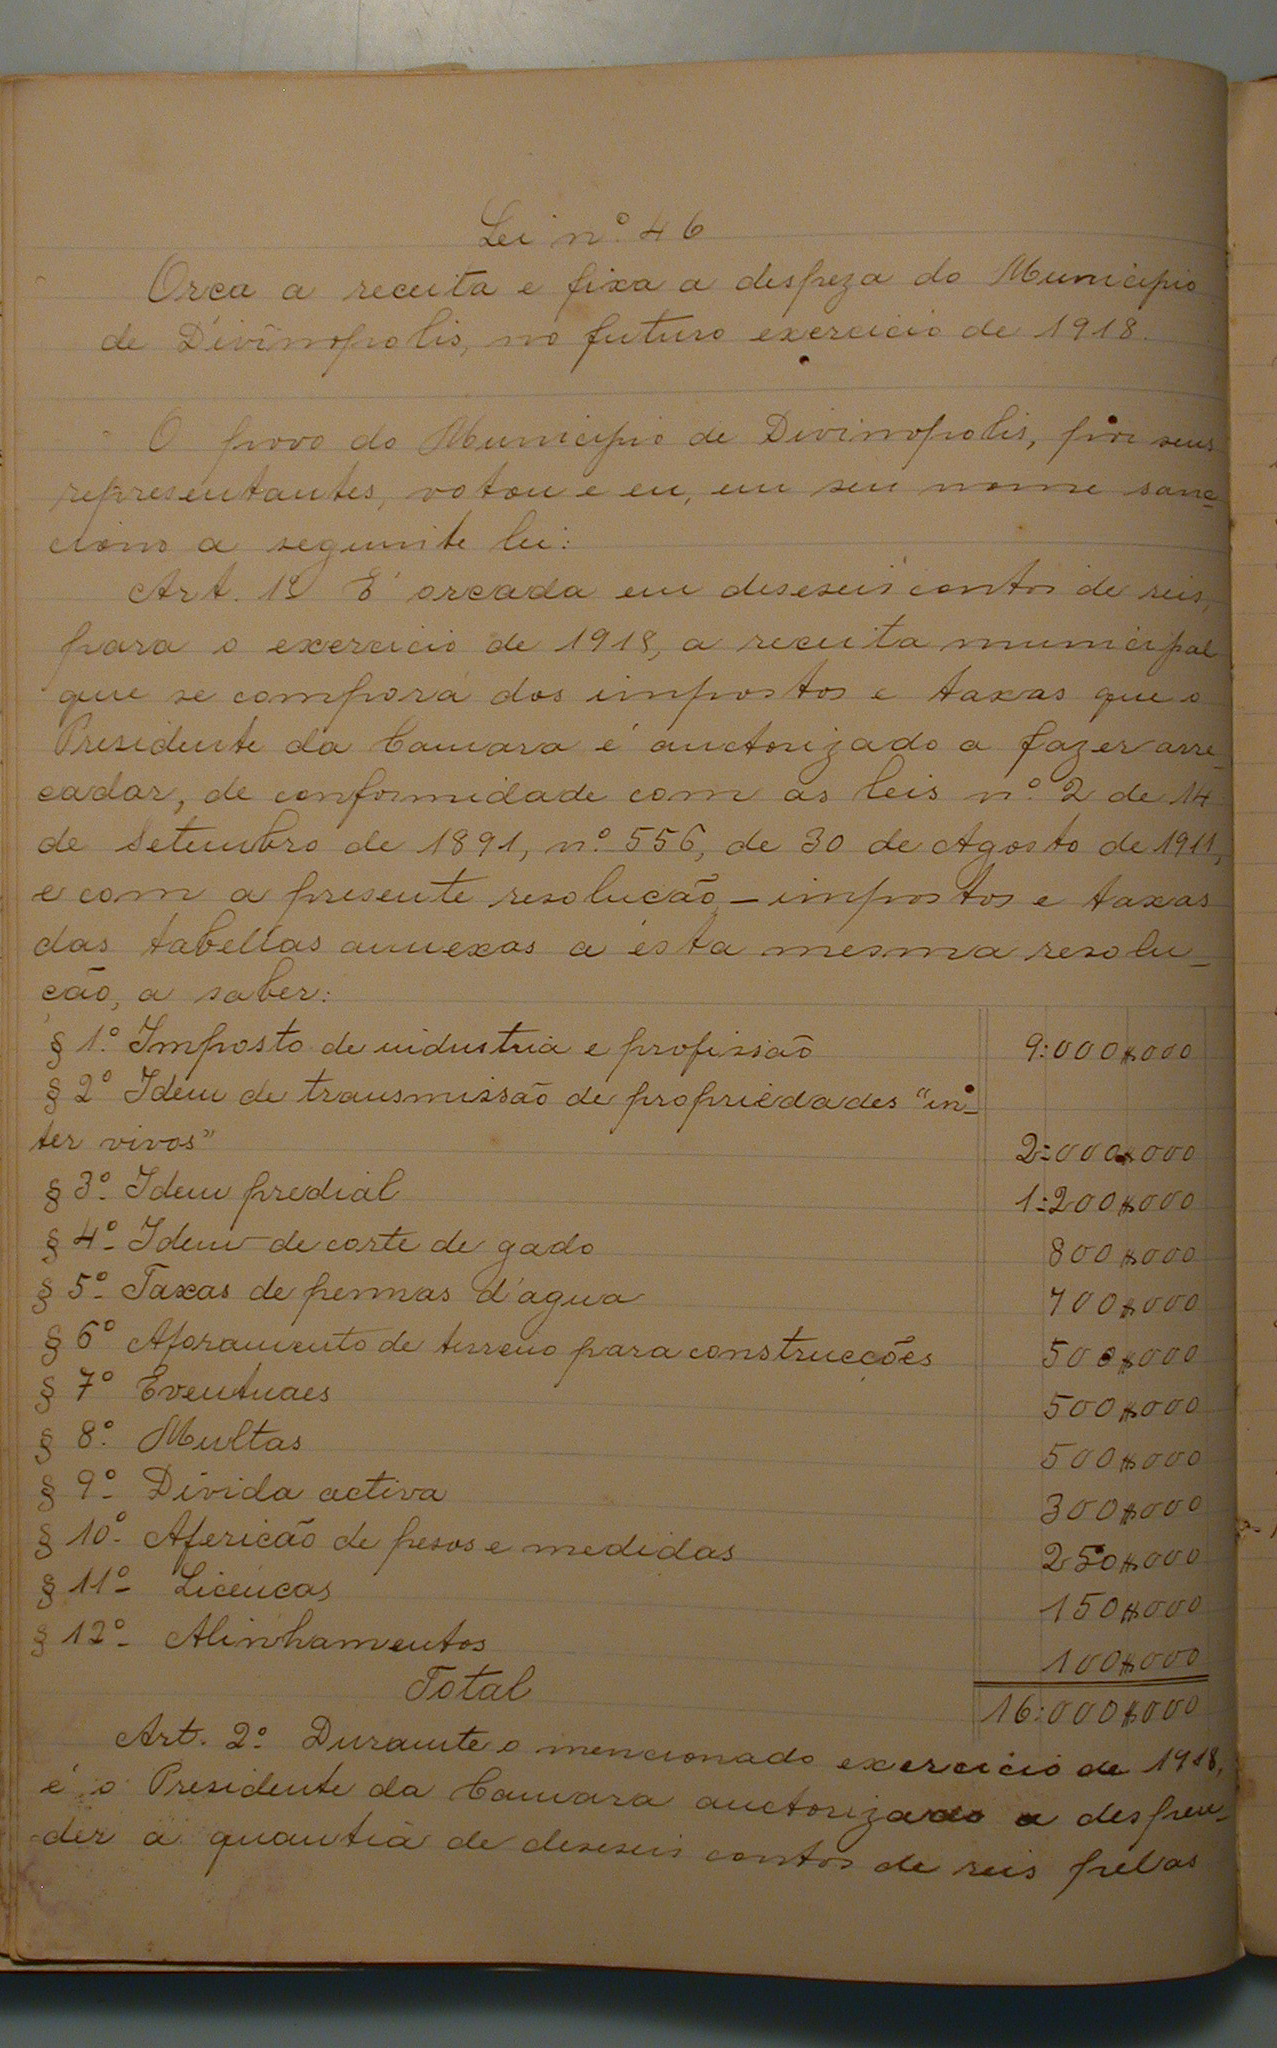 Lei nº 46
Orca a receita e fixa a despeza do Municipio
de Divinopolis, no futuro exercicio de 1918.
O povo do Municipio de Divinopolis, por seus
representantes, votou e eu, em seu nome sanc-
ciono a seguinte lei:
Art. 1º É orcada em deseseis contos de reis,
para o exercicio de 1918, a receita municipal
que se comporá dos impostos e taxas que o
Presidente da Camara é auctorizado a fazer arre-
cadar, de conformidade com as leis nº 2 de 14
de Setembro de 1891, nº 556, de 30 de Agosto de 1911,
e com a presente resolucão - impostos e taxas
das tabellas annexas a esta mesma resolu-
ção, a saber:
§ 1º Imposto de industria e profissão 9:000$000
§ 2º Idem de transmissão de propriedades "in-
ter vivos" 2:000$000
§ 3º Idem predial 1:200$000
§ 4º Idem de corte de gado 800$000
§ 5º Taxas de pennas d'agua 700$000
§ 6º Aforamento de terreno para construcções 500$000
§ 7º Eventuaes 500$000
§ 8º Multas 500$000
§ 9º Divida activa 300$000
§ 10º Afericão de pesos e medidas 250$000
§ 11º Licencas 150$000
§ 12º Alinhamentos 100$000
Total 16:000$000
Art. 2º Durante o mencionado exercicio de 1918,
é o Presidente da Camara auctorizado a despen-
der a quantia de deseseis contos de reis pelas